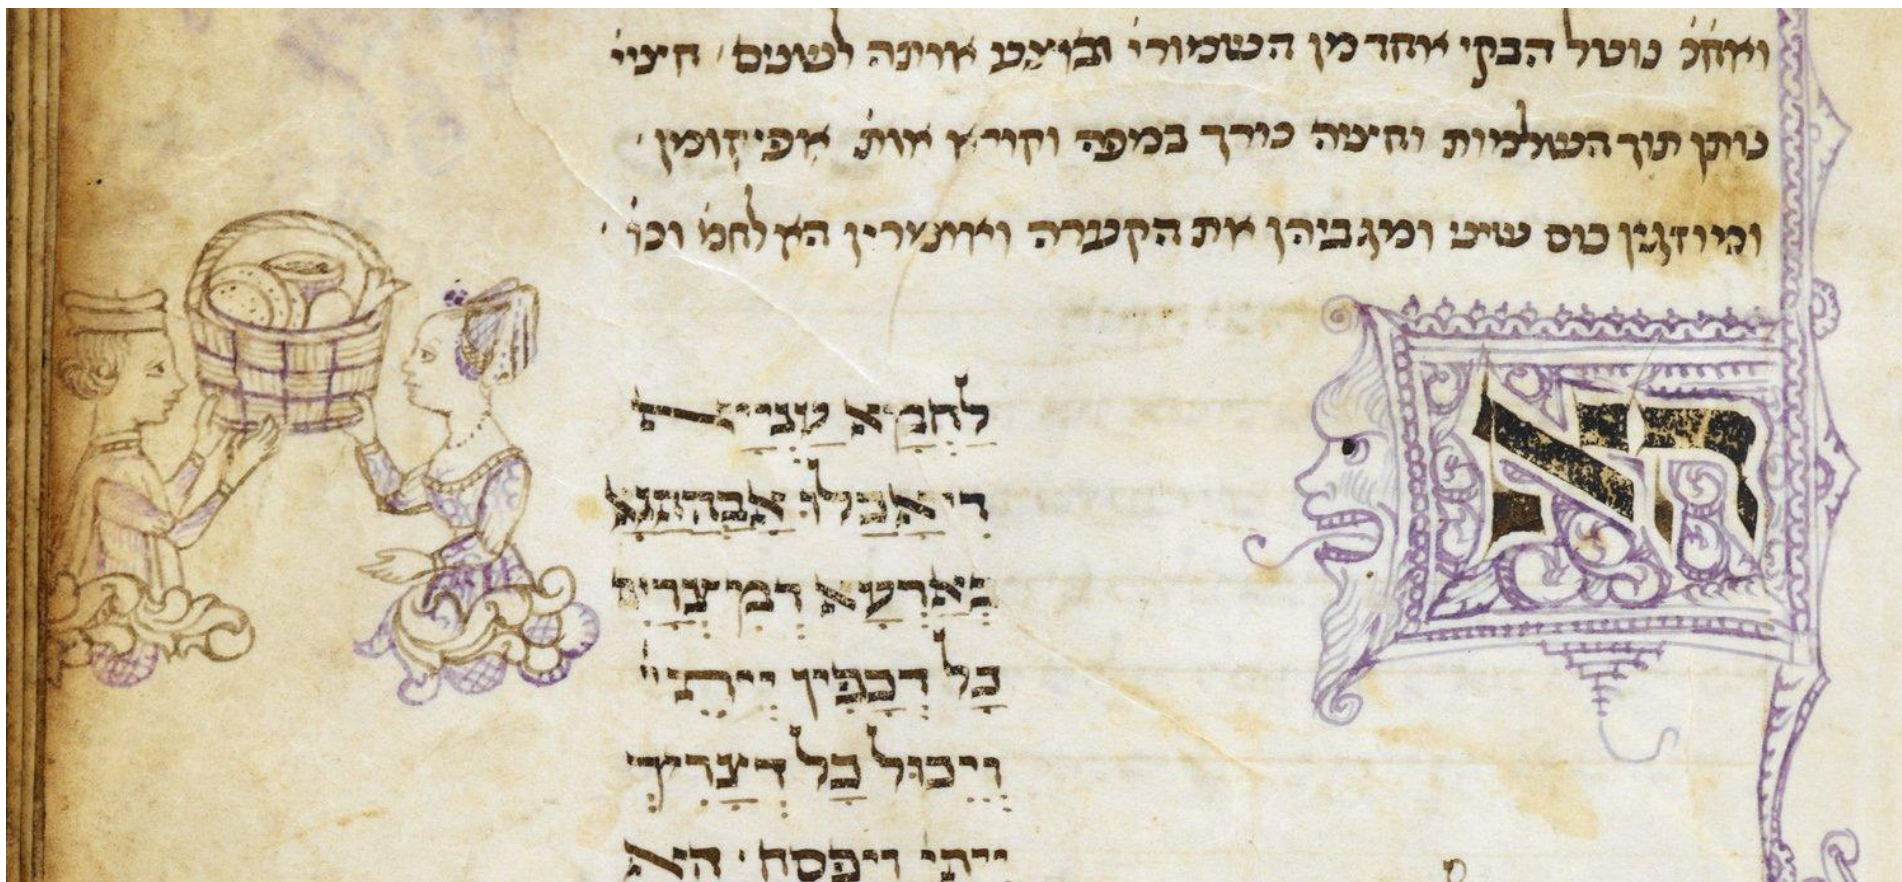 ואח׳׳כ נוטל הבקי אחד מן השמורי׳ ובוצע אותה לשנים׳ חציי׳
נותן תוך השלמות וחציה כורך במפה וקורא אות׳ אפיקומן׳
ומוזגין כוס שיני ומגביהין את הקערה ואומרין הא לחמ׳ וכו׳
הא
לַחְמָא עַנְיָא
דִי אֲכַלוּ אֲבָהָתַנָא
בְּאַרְעָא דְמִצְרָיִם
כָּל דְכָפִין יֵיתֵי
וְיֵכוּל כָּל דְצָרִיךְ
ייתי ויפסח ׳ הא